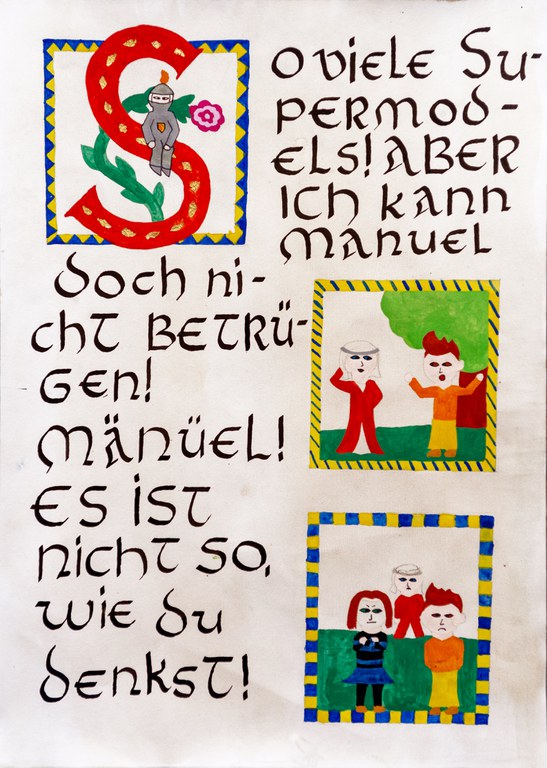 So viele Su-
permod-
els! Aber
ich kann
Manuel
doch ni-
cht betrü-
gen!
Mänüel!
Es ist
nicht so,
wie du
denkst!